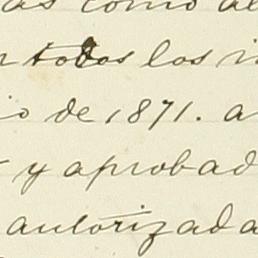 como al
todos los
de 1871. a
y aprobad
autorizada